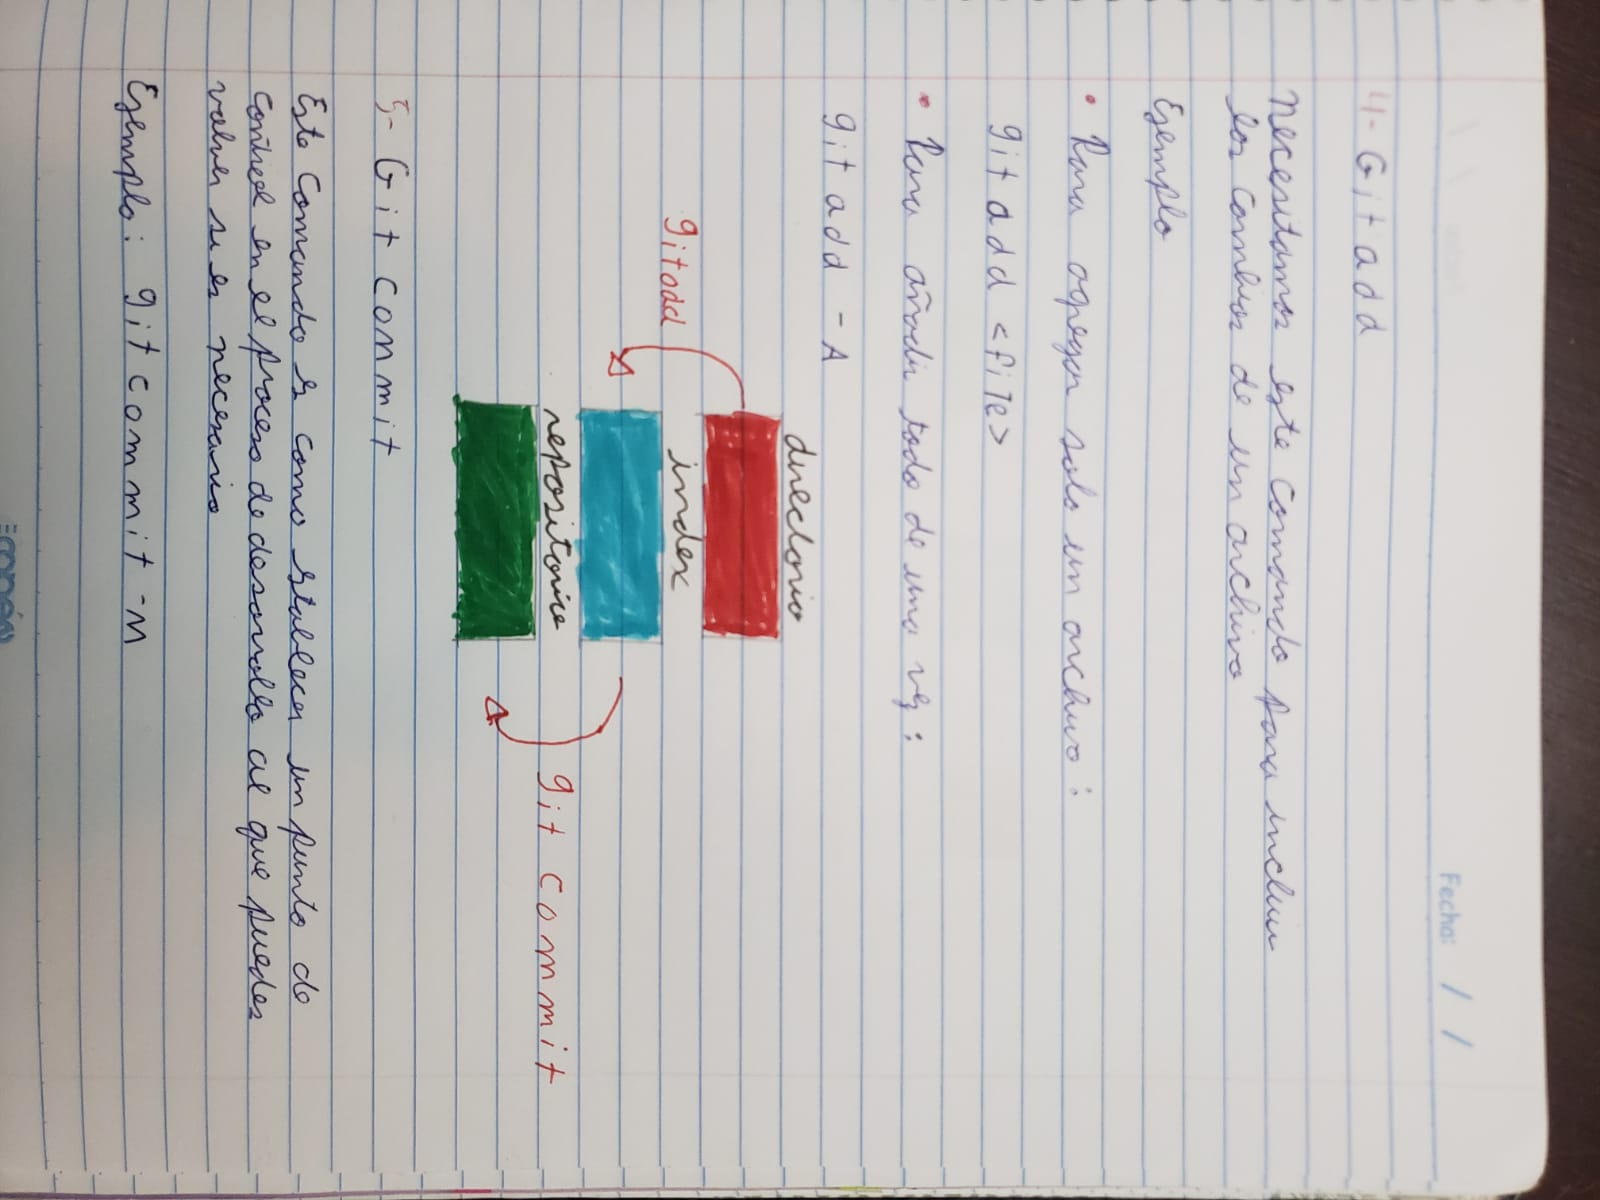 Fecha: / /
4- Git add
Necesitamos este comando para incluir
los cambios de un archivo
Ejemplo
• Para agregar solo un archivo:
git add <file>
• Para añadir todo de una vez:
git add -A
directorio
git add
index
repositorio
git commit
5- Git conmit
Este comando es como establecer un punto de
control en el proceso de desarrollo al que puedes
volver si es necesario
Ejemplo: git commit -m